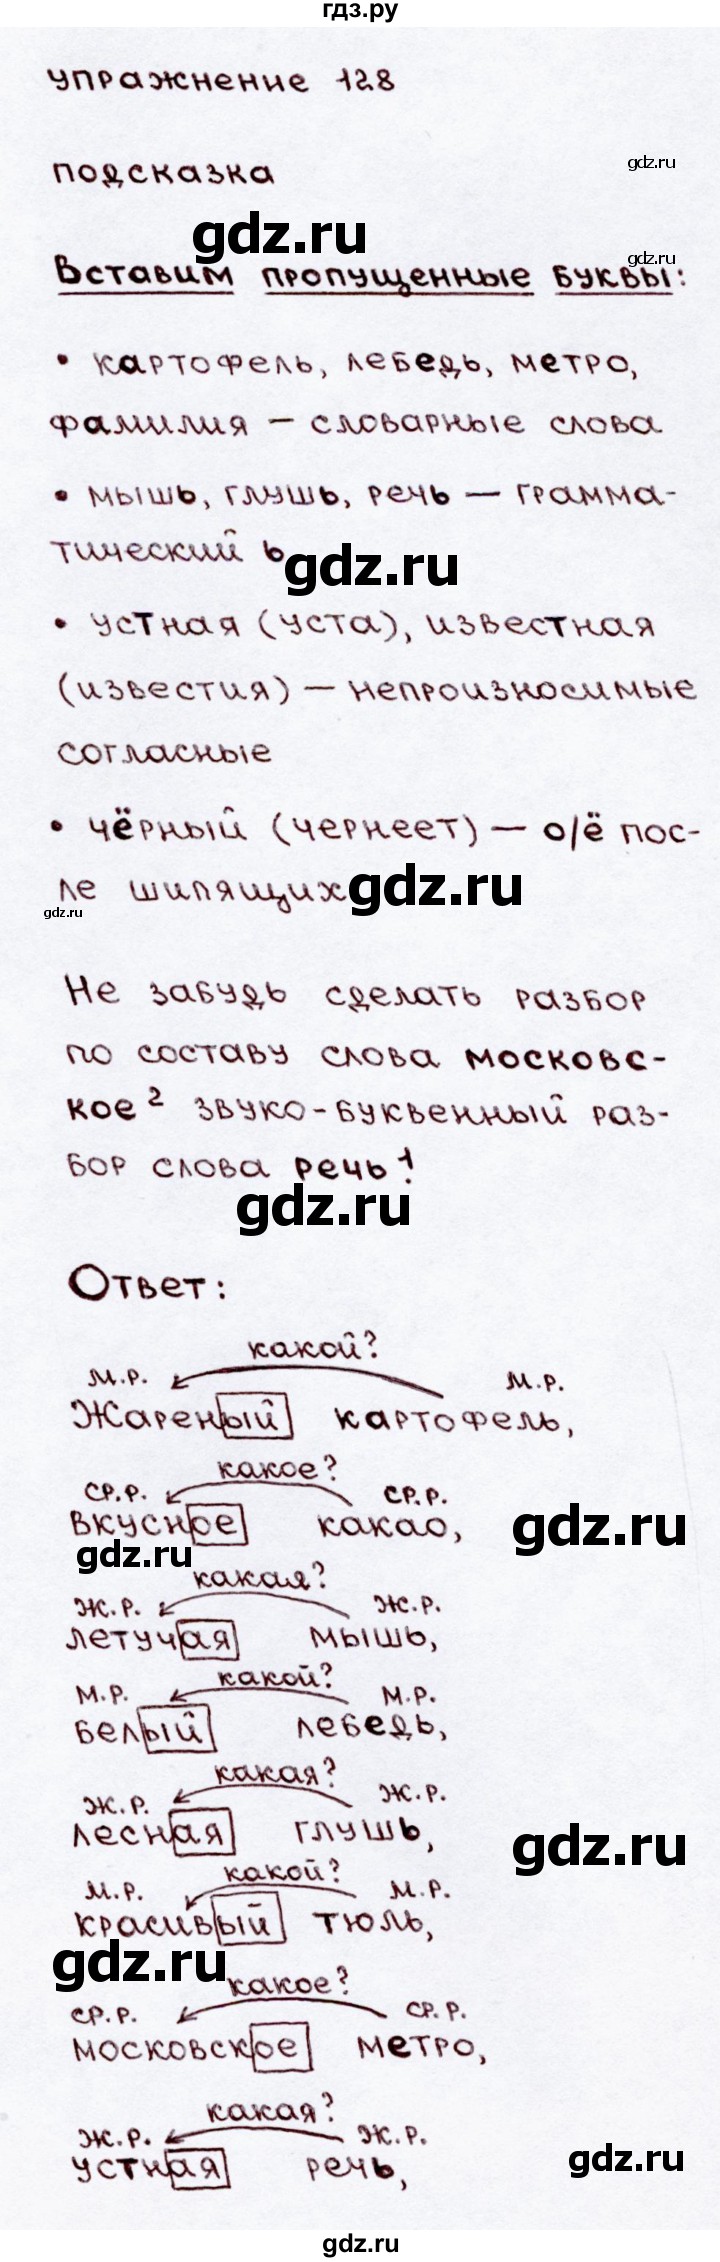 гдз.ру
упражнение 128
gdz.ru
подсказка
gdz.ru
gdz.ru
Вставим пропущенные буквы:
• картофель, лебедь, метро,
фамилия – словарные слова
• мышь, глушь, речь – грамма-
тический ь
gdz.ru
• устная (уста), известная
(известия) – непроизносимые
согласные
• чёрный (чернеет) – о/ё пос-
ле шипящих
gdz.ru
gdz.ru
Не забудь сделать разбор
по составу слова московс-
кое² звуко-буквенный раз-
бор слова речь¹!
gdz.ru
Ответ:
какой?
м.р. м.р.
Жареный картофель,
какое?
ср.р. ср.р.
вкусное какао,
gdz.ru
gdz.ru
какая?
ж.р. ж.р.
летучая мышь,
какой?
м.р. м.р.
белый лебедь,
какая?
ж.р. ж.р.
лесная глушь,
gdz.ru
какой?
м.р. м.р.
красивый тюль,
gdz.ru
какое?
ср.р. ср.р.
московское метро,
какая?
ж.р. ж.р.
устная речь,
gdz.ru
gdz.ru